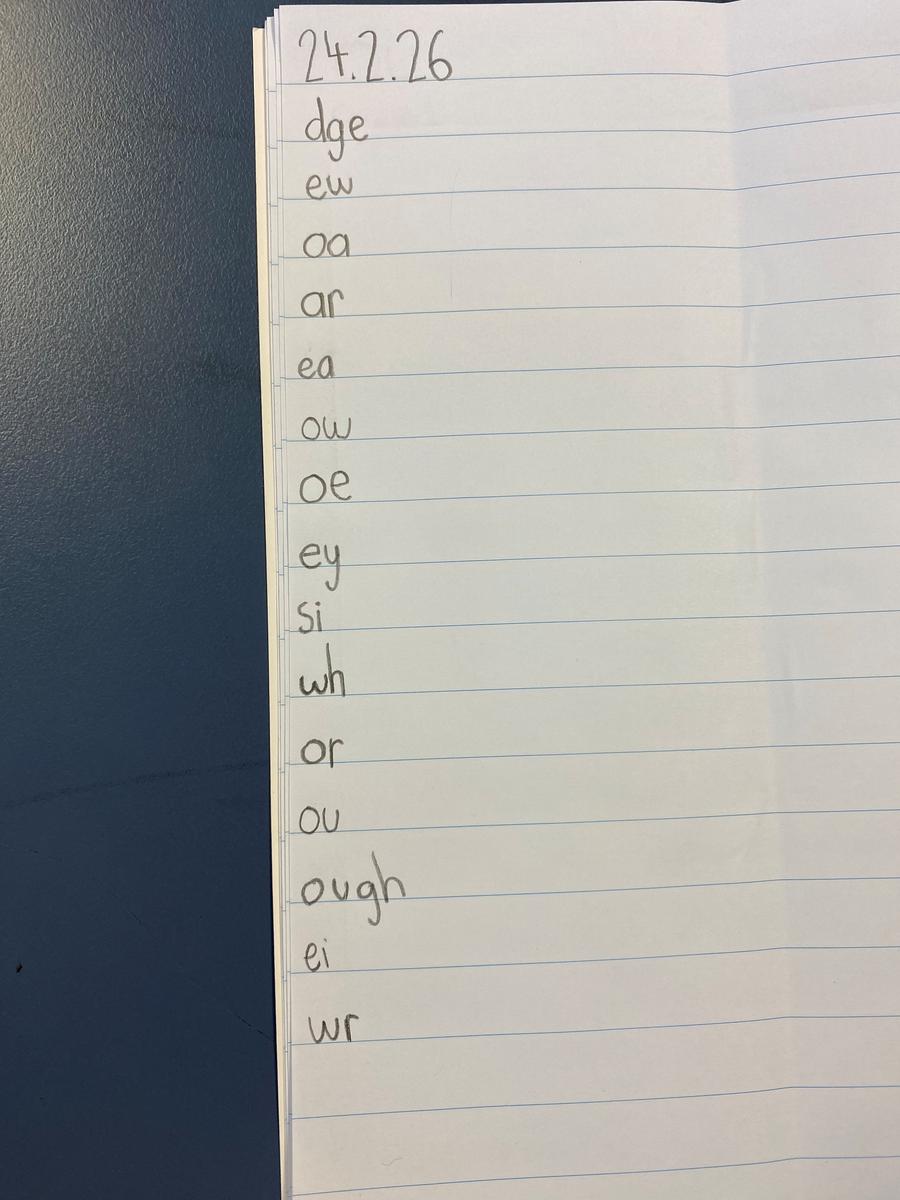 24.2.26
dge
ew
oa
ar
ea
ow
oe
ey
si
wh
or
ou
ough
ei
wr